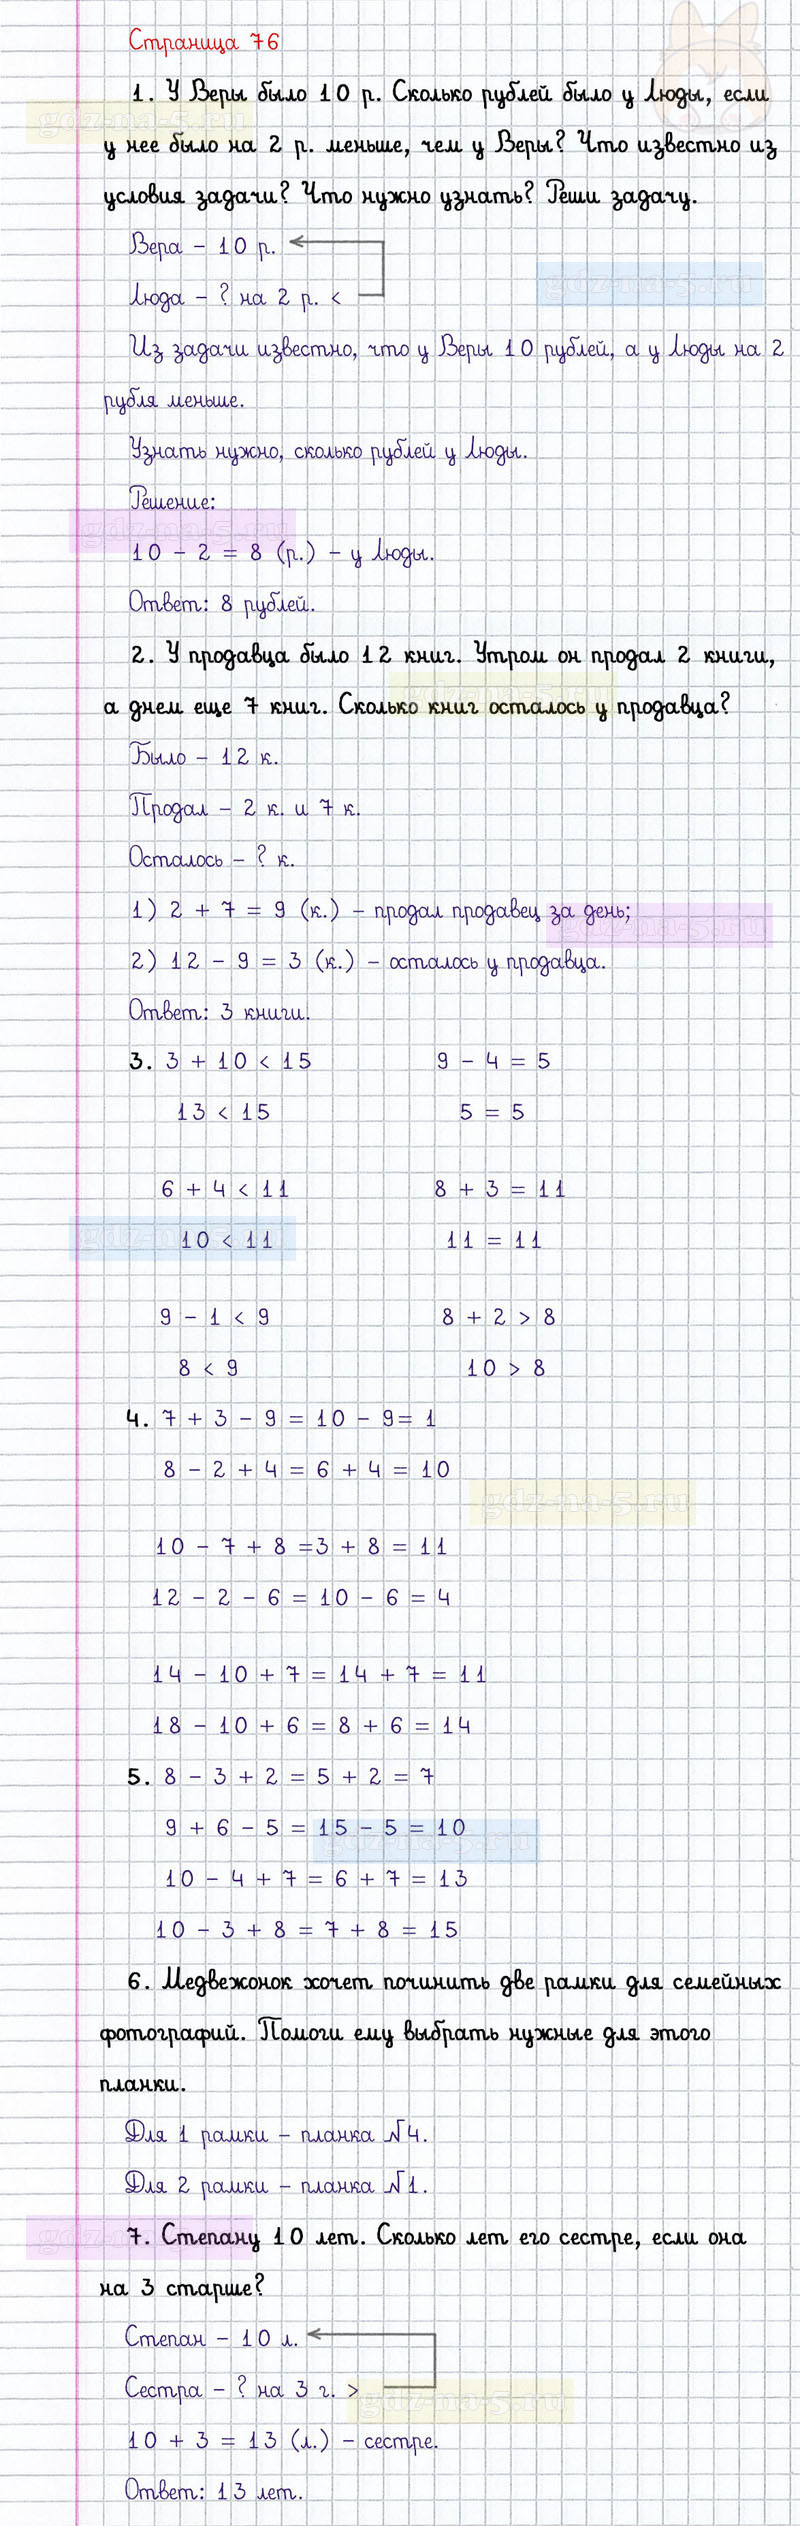 Страница 76
1. У Веры было 10 р. Сколько рублей было у Люды, если
gdz-na-5.ru
у нее было на 2 р. меньше, чем у Веры? Что известно из
условия задачи? Что нужно узнать? Реши задачу.
Вера – 10 р.
gdz-na-5.ru
Люда – ? на 2 р. <
Из задачи известно, что у Веры 10 рублей, а у Люды на 2
рубля меньше.
Узнать нужно, сколько рублей у Люды.
Решение:
gdz-na-5.ru
10 – 2 = 8 (р.) – у Люды.
Ответ: 8 рублей.
2. У продавца было 12 книг. Утром он продал 2 книги,
gdz-na-5.ru
а днем еще 7 книг. Сколько книг осталось у продавца?
Было – 12 к.
Продал – 2 к. и 7 к.
Осталось – ? к.
1) 2 + 7 = 9 (к.) – продал продавец за день;
gdz-na-5.ru
2) 12 – 9 = 3 (к.) – осталось у продавца.
Ответ: 3 книги.
3. 3 + 10 < 15 9 – 4 = 5
13 < 15 5 = 5
6 + 4 < 11 8 + 3 = 11
gdz-na-5.ru
10 < 11 11 = 11
9 – 1 < 9 8 + 2 > 8
8 < 9 10 > 8
4. 7 + 3 – 9 = 10 – 9= 1
8 – 2 + 4 = 6 + 4 = 10
gdz-na-5.ru
10 – 7 + 8 =3 + 8 = 11
12 – 2 – 6 = 10 – 6 = 4
14 – 10 + 7 = 14 + 7 = 11
18 – 10 + 6 = 8 + 6 = 14
5. 8 – 3 + 2 = 5 + 2 = 7
9 + 6 – 5 = 15 – 5 = 10
gdz-na-5.ru
10 – 4 + 7 = 6 + 7 = 13
10 – 3 + 8 = 7 + 8 = 15
6. Медвежонок хочет починить две рамки для семейных
фотографий. Помоги ему выбрать нужные для этого
планки.
Для 1 рамки – планка №4.
Для 2 рамки – планка №1.
gdz-na-5.ru
7. Степану 10 лет. Сколько лет его сестре, если она
на 3 старше?
Степан – 10 л.
Сестра – ? на 3 г. >
gdz-na-5.ru
10 + 3 = 13 (л.) – сестре.
Ответ: 13 лет.